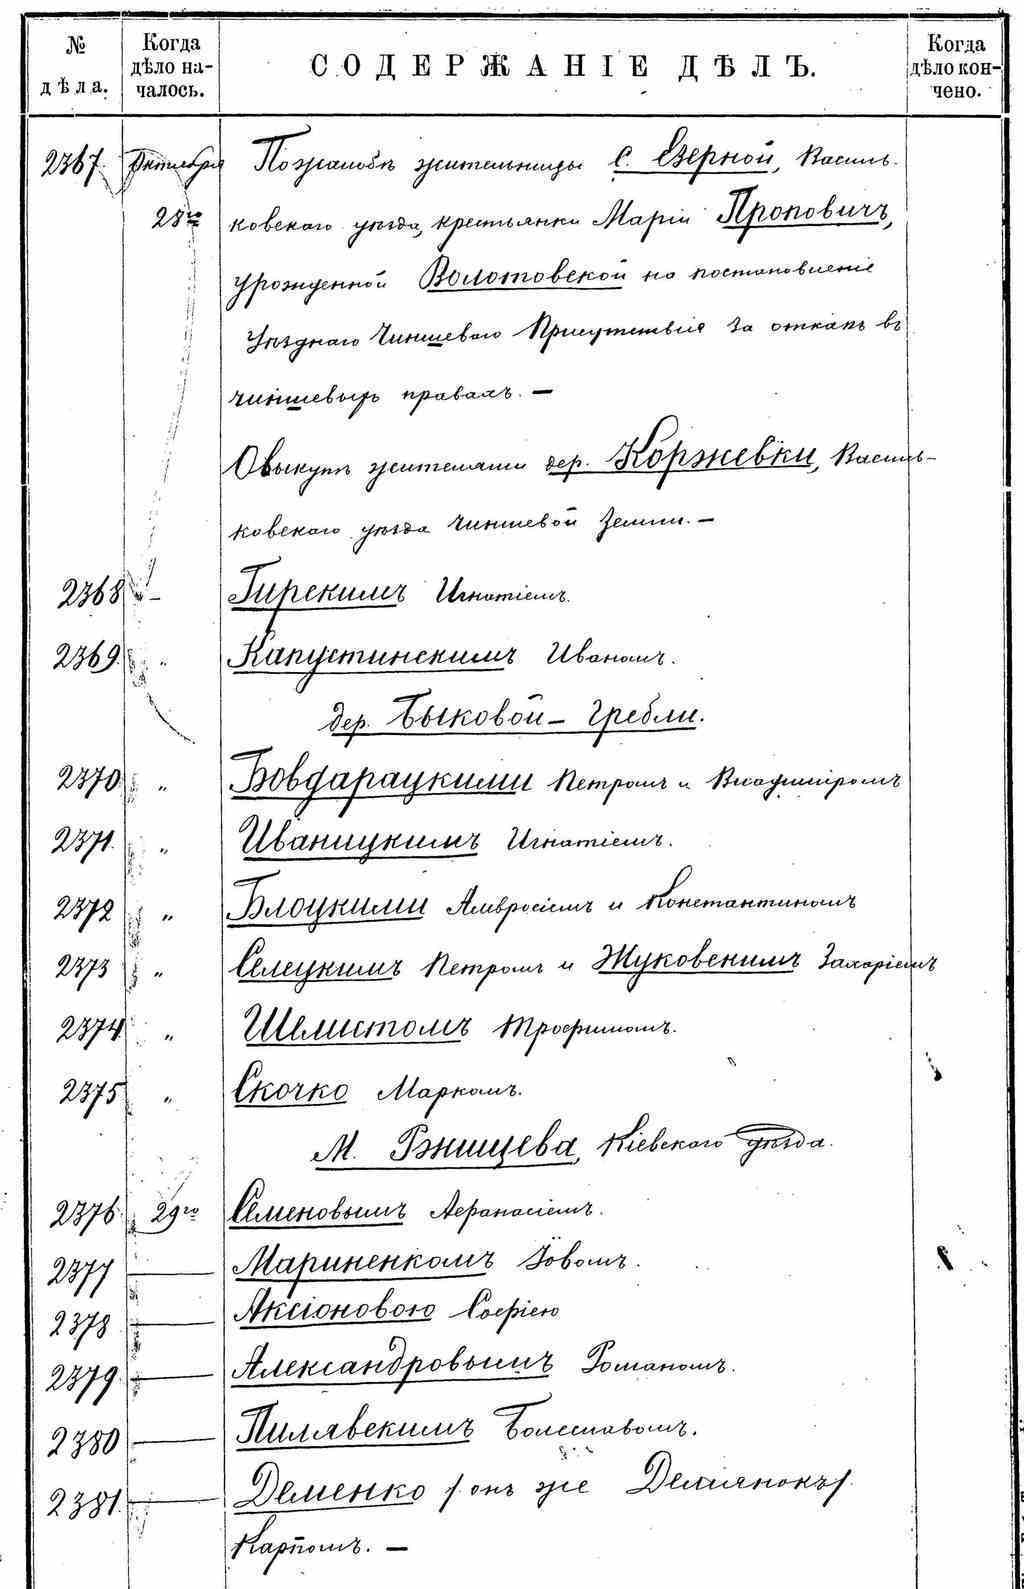 № дѣла.
Когда дѣло на-
чалось.
СОДЕРЖАНІЕ ДѢЛЪ.
Когда дѣло кон-
чено.
2367. Октября По жалобѣ жительницы с. Езерной, Василь-
28го ковскаго уѣзда, крестьянки Маріи Пропович,
урожденной Волотовской на постановленіе
Уѣзднаго Чиншеваго Присутствія за отказъ въ
чиншевыхъ правахъ. —
О выкупѣ жителями дер. Коржевки, Василь-
ковскаго уѣзда чиншевой земли. —
2368 - Гирскимъ Игнатіемъ.
2369. „ Капустинскимъ Иваномъ.
дер. Быковой-Гребли.
2370 „ Бовдарацкими Петромъ и Владиміромъ
2371. „ Иваницкимъ Игнатіемъ.
2372 „ Блоцкими Амвросіемъ и Константиномъ
2373 „ Селецкимъ Петромъ и Жуковскимъ Захаріемъ
2374 „ Шелистомъ Трофимомъ.
2375 „ Скочко Маркомъ.
М. Ржищева, Кіевскаго уѣзда.
2376 29го Семеновымъ Афанасіемъ.
2377 — Мариненкомъ Іовомъ.
2378 — Аксіоновою Софіею
2379 — Александровымъ Романомъ.
2380 — Пилявскимъ Болеславомъ.
2381. — Деменко /онъ же Демянокъ/
Карпомъ. —